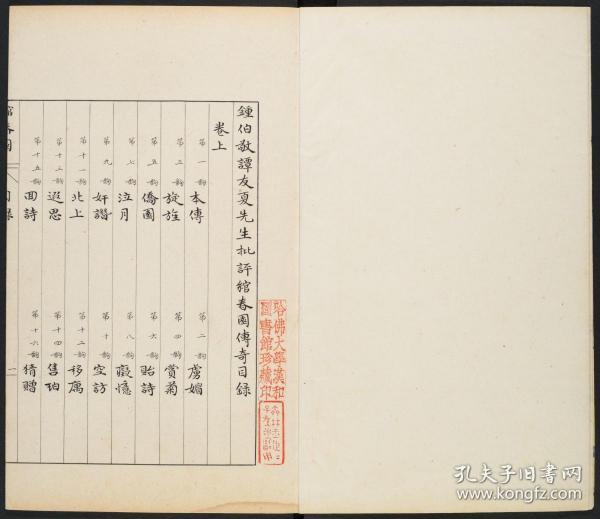 鍾伯敬譚友夏先生批評綰春園傳奇目錄
卷上
第一齣 本傳 第二齣 虜媚
第三齣 旋旌 第四齣 賞菊
第五齣 僑園 第六齣 貽詩
第七齣 泣月 第八齣 凝憶
第九齣 奸譖 第十齣 空訪
第十一齣 北上 第十二齣 移寓
第十三齣 遐思 第十四齣 售珀
第十五齣 回詩 第十六齣 猜贈
綰春園 目錄 一
哈佛大學漢和圖書館珍藏印
孔夫子旧书网
www.kongfz.com